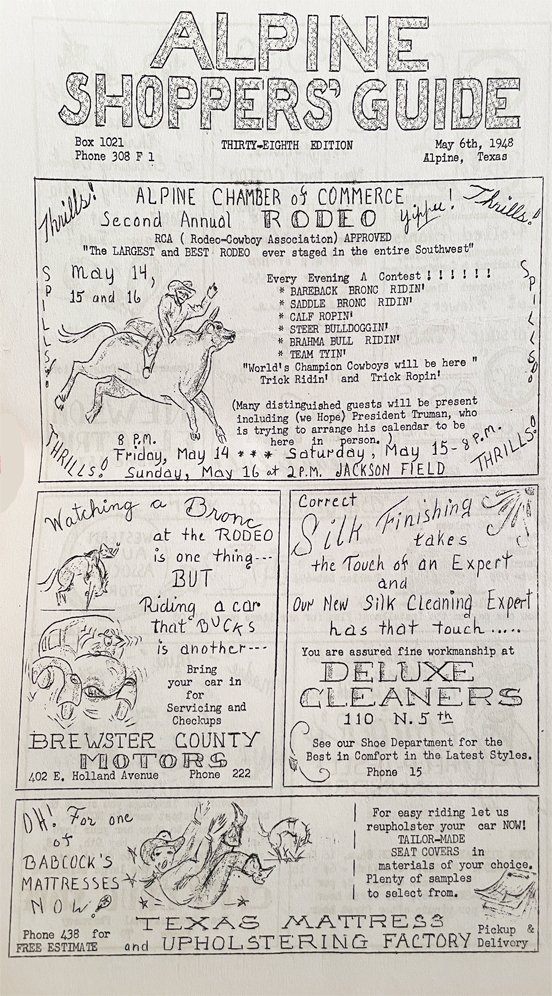 ALPINE
SHOPPERS' GUIDE
Box 1021
Phone 308 F 1
THIRTY-EIGHTH EDITION
May 6th, 1948
Alpine, Texas
Thrills!
ALPINE CHAMBER of COMMERCE
Second Annual RODEO
yippee!
Thrills!
RCA ( Rodeo-Cowboy Association) APPROVED
"The LARGEST and BEST RODEO ever staged in the entire Southwest"
SPILLS!
May 14,
15 and 16
Every Evening A Contest ! ! ! ! ! !
* BAREBACK BRONC RIDIN'
* SADDLE BRONC RIDIN'
* CALF ROPIN'
* STEER BULLDOGGIN'
* BRAHMA BULL RIDIN'
* TEAM TYIN'
SPILLS!
"World's Champion Cowboys will be here "
Trick Ridin' and Trick Ropin'
(Many distinguished guests will be present
including (we Hope) President Truman, who
is trying to arrange his calendar to be
here in person. )
THRILLS!
8 P.M.
Friday, May 14 * * * Saturday, May 15 - 8 P.M.
Sunday, May 16 at 2 P.M. JACKSON FIELD
THRILLS!
Watching a Bronc
at the RODEO
is one thing---
BUT
Riding a car
that BUCKS
is another---
Bring
your car in
for
Servicing and
Checkups
BREWSTER COUNTY
MOTORS
402 E. Holland Avenue Phone 222
Correct
Silk Finishing
takes
the Touch of an Expert
and
Our New Silk Cleaning Expert
has that touch .....
You are assured fine workmanship at
DELUXE
CLEANERS
110 N. 5th
See our Shoe Department for the
Best in Comfort in the Latest Styles.
Phone 15
OH! For one
of
BABCOCK'S
MATTRESSES
NOW!
For easy riding let us
reupholster your car NOW!
TAILOR-MADE
SEAT COVERS in
materials of your choice.
Plenty of samples
to select from.
TEXAS MATTRESS
and UPHOLSTERING FACTORY
Phone 438 for
FREE ESTIMATE
Pickup &
Delivery